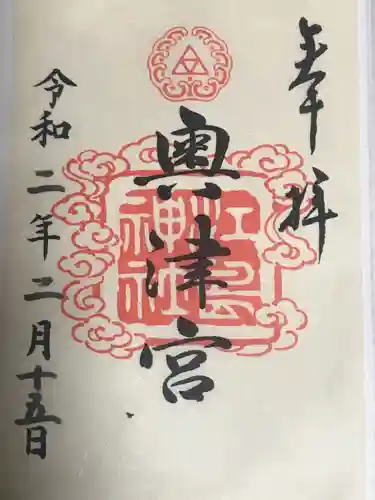 奉拝
奥津宮
江島神社
令和二年二月十五日